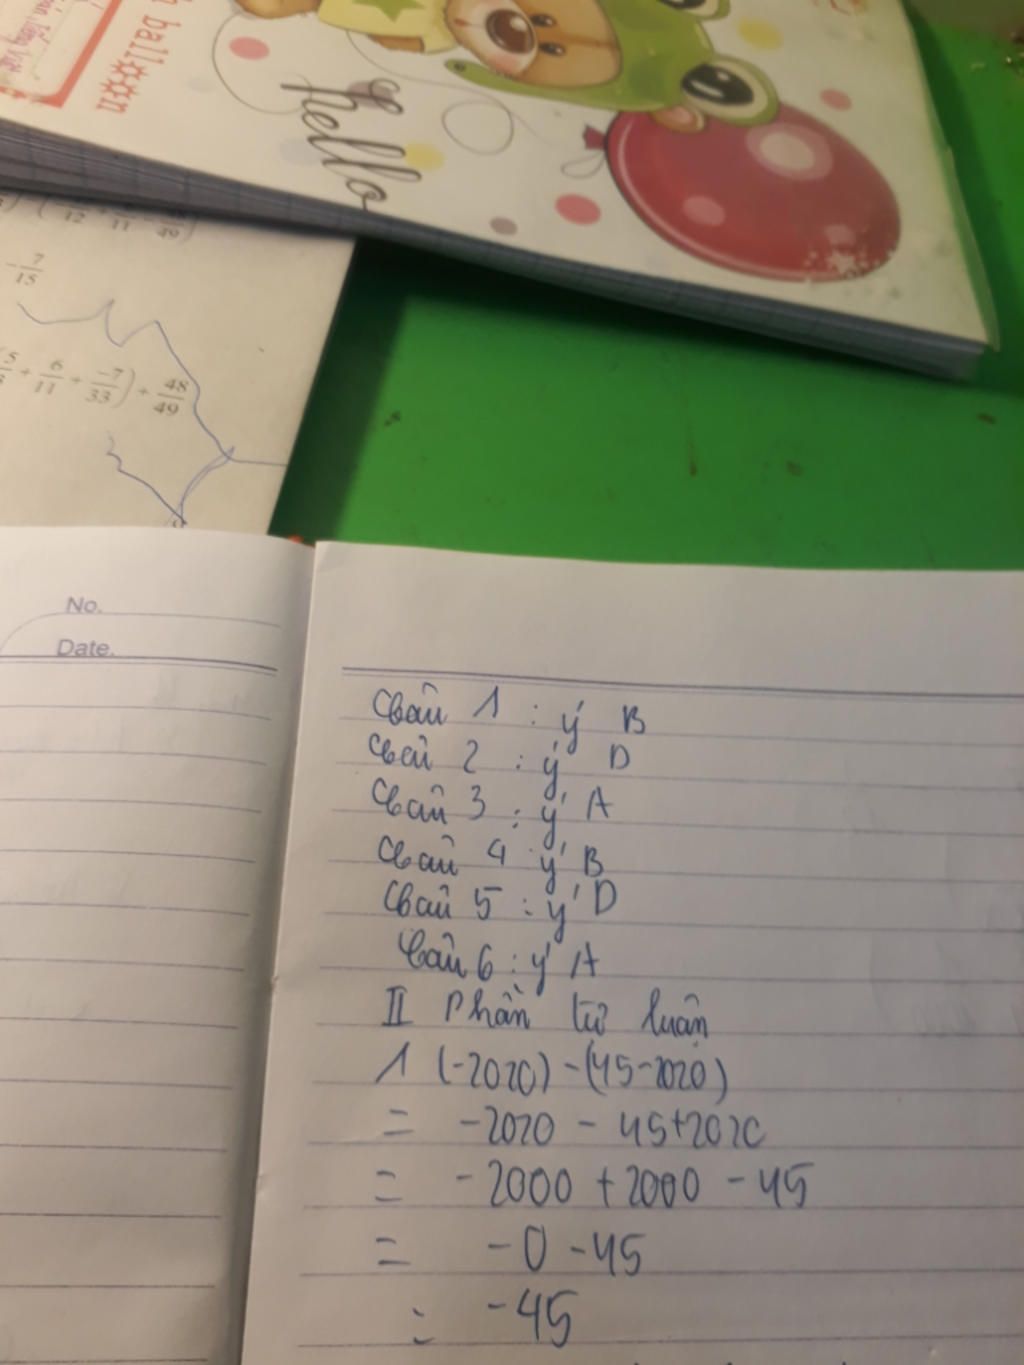 h balloon
hello
12 11 49
-7/15
5 + 6/11 + -7/33) + 48/49
No.
Date.
Câu 1 : ý B
Câu 2 : ý D
Câu 3 : ý A
Câu 4 : ý B
Câu 5 : ý D
Câu 6 : ý A
II Phần tự luận
1 (-2020) - (45-2020)
= -2020 - 45+2020
= -2000 + 2000 - 45
= -0 - 45
= -45